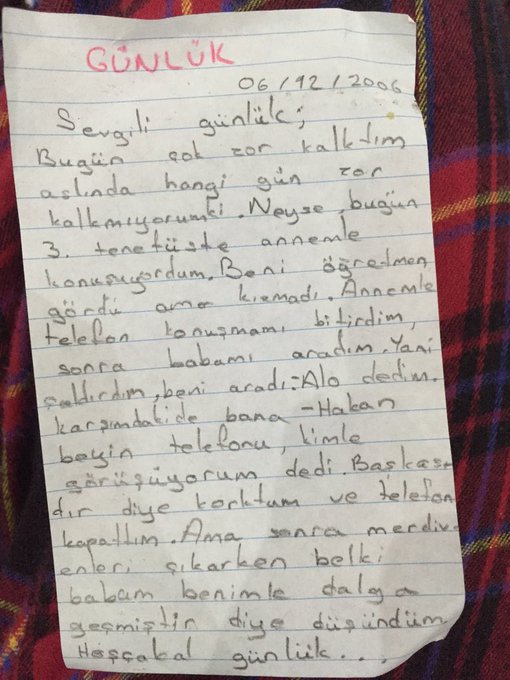 GÜNLÜK
06/12/2006
Sevgili günlük;
Bugün çok zor kalktım
aslında hangi gün zor
kalkmıyorumki. Neyse, bugün
3. tenefüste annemle
konuşuyordum. Beni öğretmen
gördü ama kızmadı. Annemle
telefon konuşmamı bitirdim,
sonra babamı aradım. Yani
çaldırdım, beni aradı:-Alo dedim.
karşımdakide bana -Hakan
beyin telefonu, kimle
görüşüyorum dedi. Başkası-
dır diye korktum ve telefon
kapattım. Ama sonra merdiv-
enleri çıkarken belki
babam benimle dalga
geçmiştir diye düşündüm
Hoşçakal günlük...